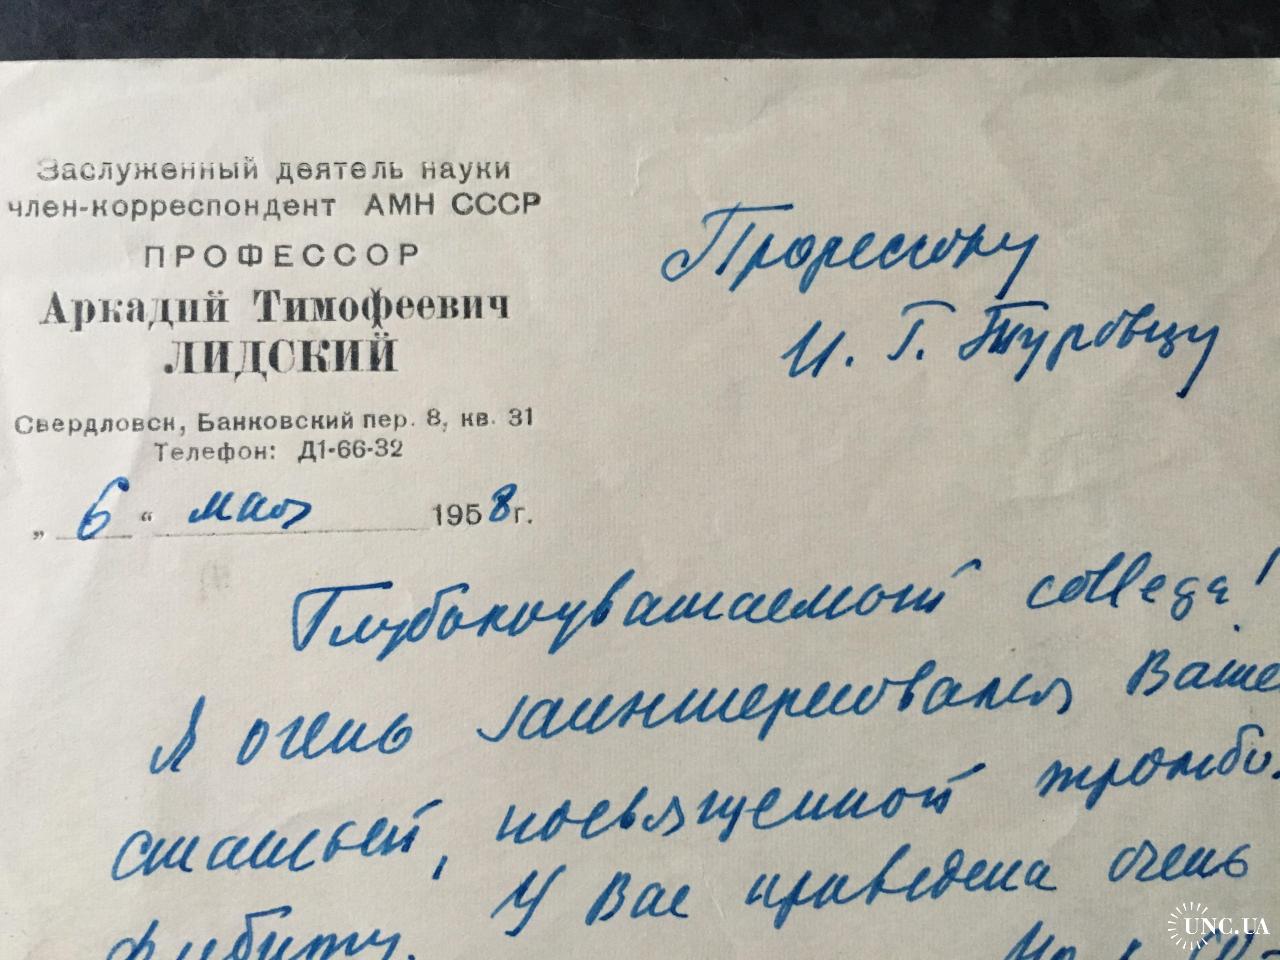 Заслуженный деятель науки
член-корреспондент АМН СССР
ПРОФЕССОР
Аркадий Тимофеевич
ЛИДСКИЙ
Свердловск, Банковский пер. 8, кв. 31
Телефон: Д1-66-32
„ 6 “ мая 1958 г.
Профессору
И. Г. Туровцу
Глубокоуважаемый collega!
Я очень заинтересовался Вашей
статьей, посвященной тромбо-
флебиту. У Вас приведена очень
UNC.UA